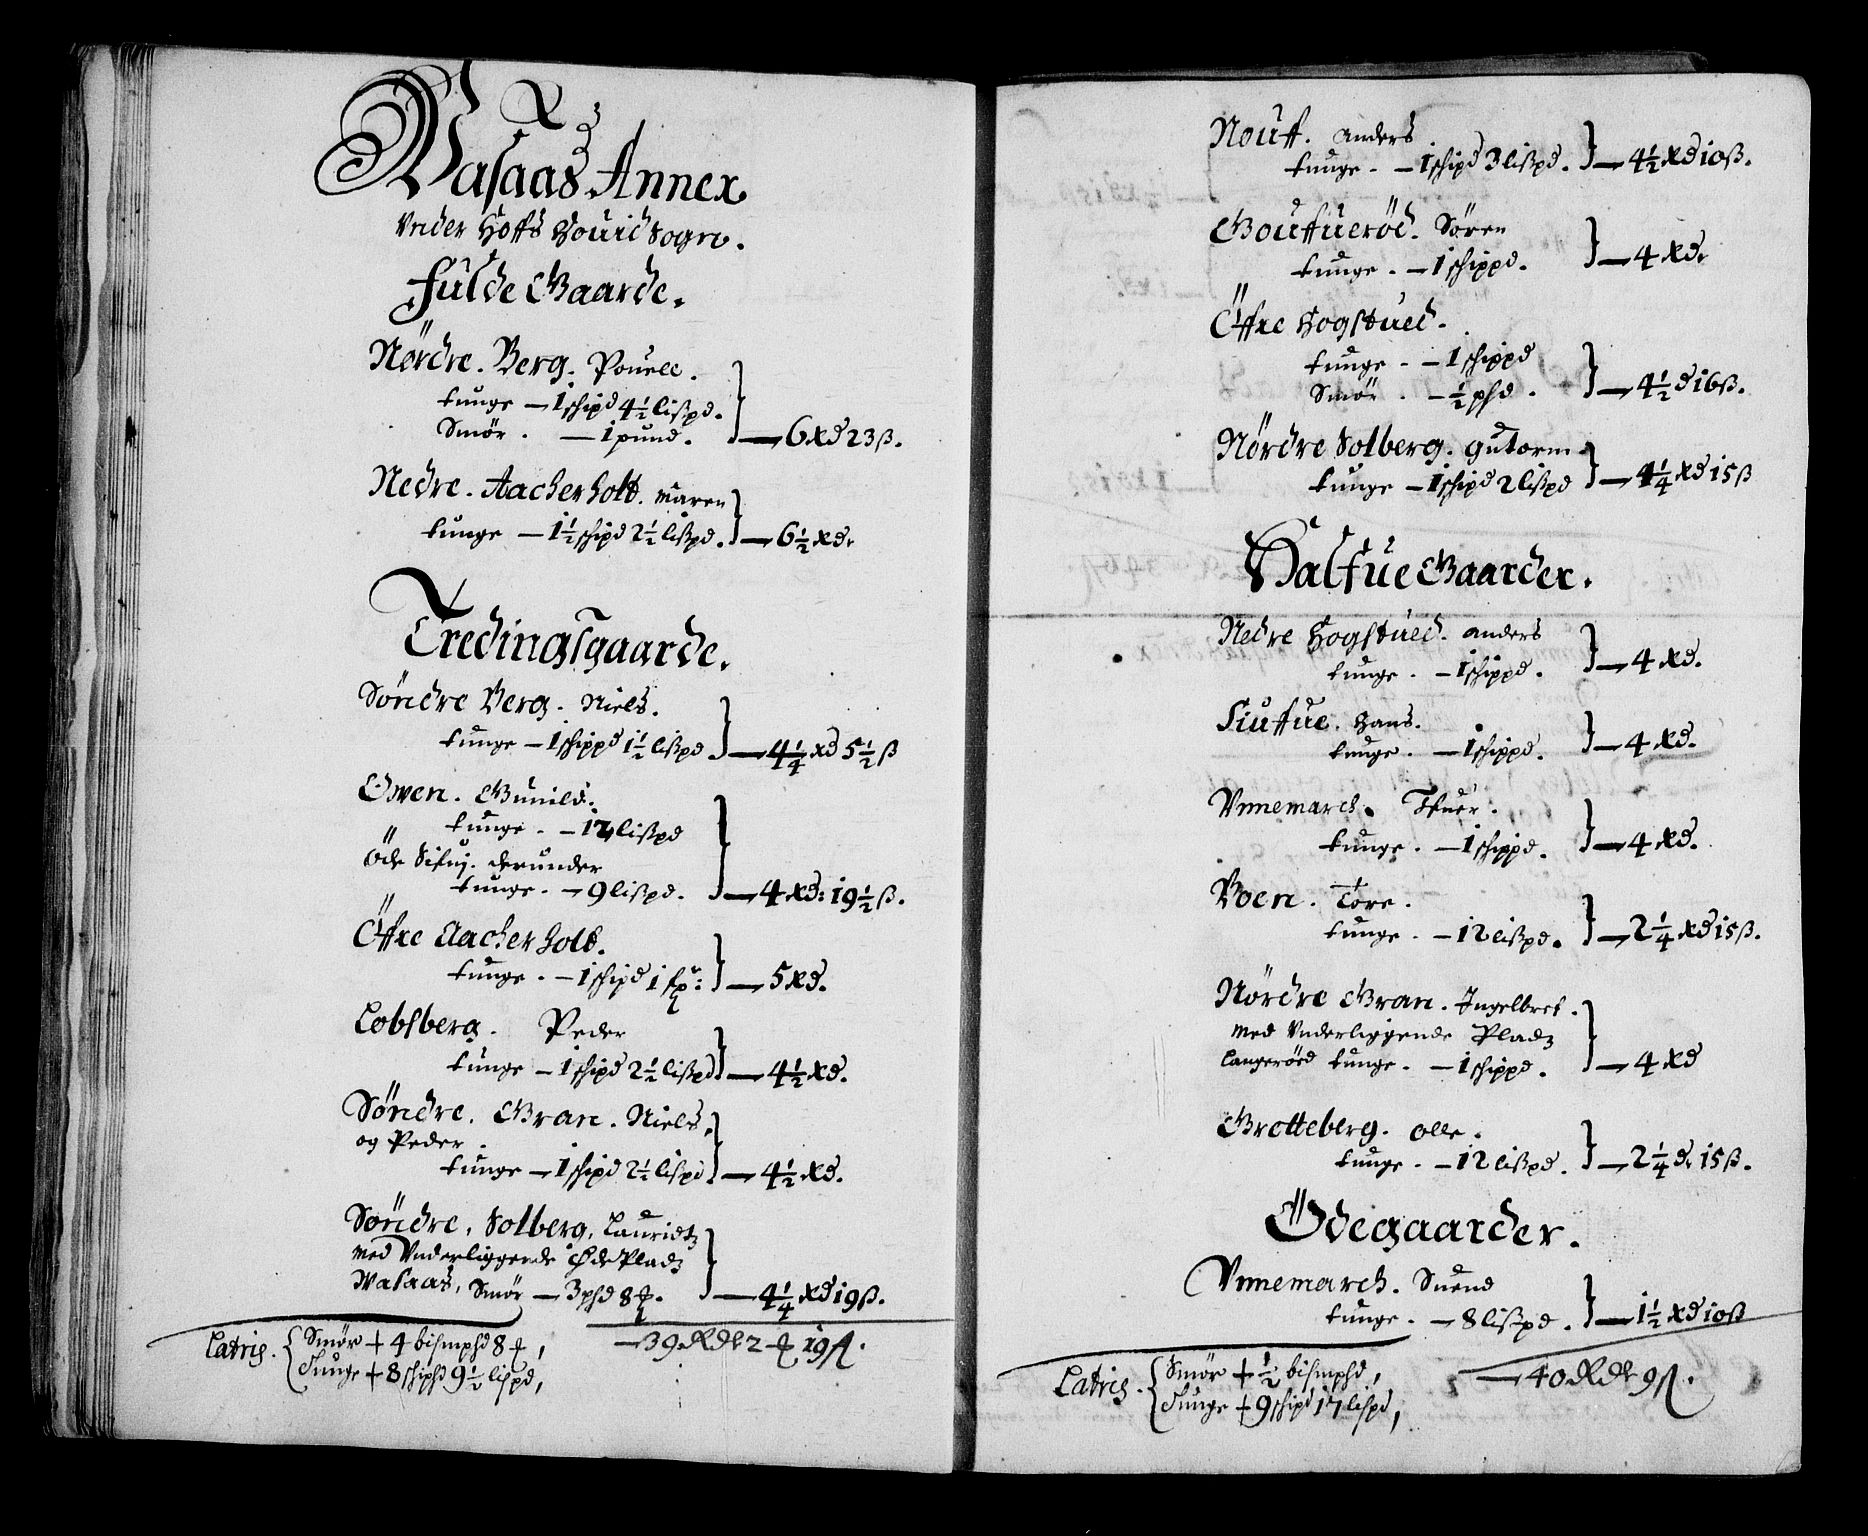 Wasaas Annex
Vnder Hoffs Houid Sogn.
Fulde Gaarde.
Nordre. Berg. Pouell.
tunge — 1 schipd 4½ lißpd.
Smör. — 1 pund. — 6 Rd 23 ß.
Nedre. Aacherholt. Maren
tunge — 1½ schipd 2½ lißpd. — 6½ Rd.
Tredingsgaarde.
Söndre Berg. Niels.
tunge — 1 schippd 1½ lißpd. — 4¼ Rd 5½ ß
Gwen. Gunild.
tunge. — 17 lißpd
Öde derunder
tunge. — 9 lißpd. — 4 Rd: 19½ ß.
Öffre Aacherholt.
tunge. — 1 schipd — 5 Rd.
Lobsberg. Peder
tunge — 1 schipd 2½ lißpd — 4½ Rd.
Söndre. Gran. Niels.
og Peder.
tunge — 1 schipd 2½ lispd. — 4½ Rd.
Söndre. Solberg. Lauridtz
med Vnderliggende Öde Pladz
Wasaas, Smör — 3 phd 8 — 4¼ Rd 19 ß.
Latris. Smör + 4 bismphd 8 — 39 Rdr 2 19 ß.
Tunge + 8 schiphd 9½ lispd,
Nouff. Anders
tunge. — 1 schipd 3 lißpd. — 4½ Rd 10 ß.
Gouffueröd. Sören
tunge. — 1 schippd. — 4 Rd.
Öffre Hogstued.
tunge. — 1 schippd
Smör. — ½ phd. — 4½ d 16 ß.
Nordre Solberg. Gutorm
tunge — 1 schipd 2 lißpd — 4¼ Rd 15 ß
Halfue Gaarder.
Nedre Hogstued. Anders
tunge. — 1 schippd. — 4 Rd.
Siuffue. Hans.
tunge. — 1 schippd. — 4 Rd.
Vnnemarch. Ifuer.
tunge. — 1 schippd. — 4 Rd.
Boen. Tore.
tunge. — 12 lißpd. — 2¼ Rd 15 ß.
Nordre Gran. Ingelbret.
med Vnderliggende Pladz
Langeröed tunge. — 1 schippd. — 4 Rd
Grotteberg. Olle.
tunge. — 12 lißpd. — 2¼ d. 15 ß.
Ödegaarder.
Vnnemarch. Suend
tunge. — 8 lißpd. — 1½ Rd 10 ß
Latris. Smör + ½ bismphd, — 40 Rdr 9 ß.
Tunge + 9 schipd 17 lispd,